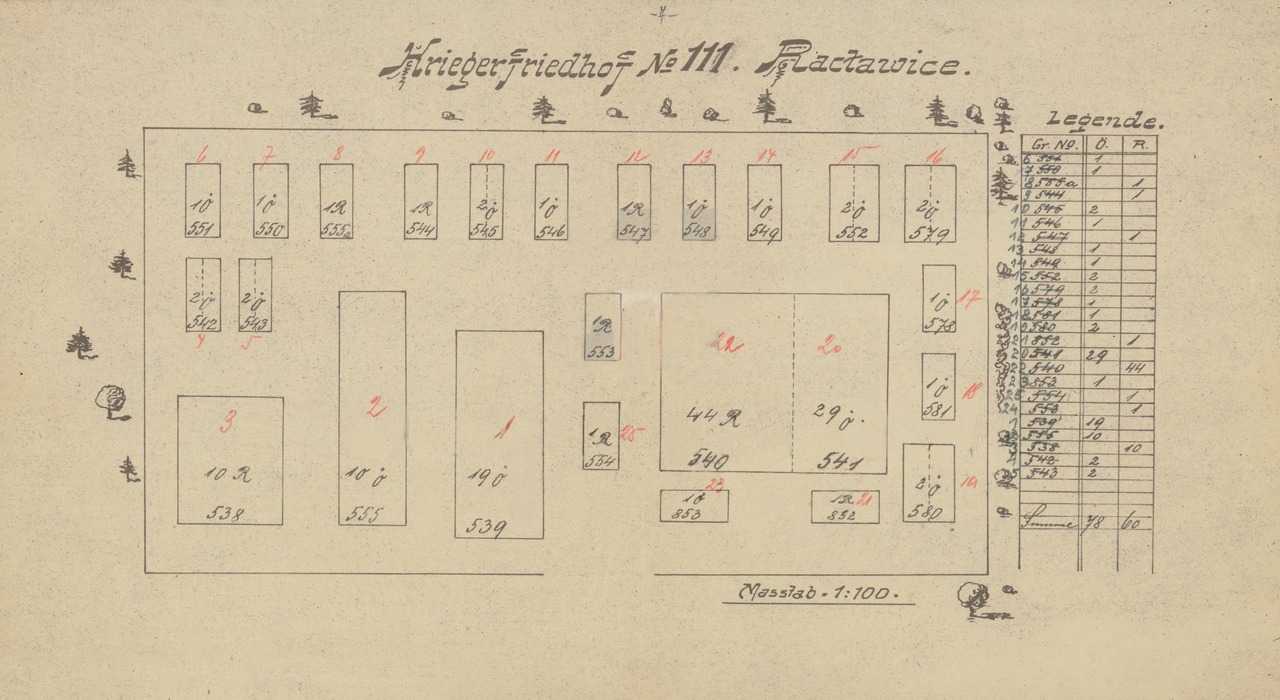 Kriegerfriedhof No 111. Racławice.
Legende.
Gr. No. Ö. R.
6 551 1
7 550 1
8 555a 1
9 544 1
10 545 2
11 546 1
12 547 1
13 548 1
14 549 1
15 552 2
16 579 2
17 578 1
18 581 1
19 580 2
21 852 1
20 541 29
22 540 44
23 853 1
25 554 1
24 553 1
1 539 19
2 555 10
3 538 10
4 542 2
5 543 2
Summe 78 60
6 7 8 9 10 11 12 13 14 15 16
1Ö 1Ö 1R 1R 2Ö 1Ö 1R 1Ö 1Ö 2Ö 2Ö
551 550 555a 544 545 546 547 548 549 552 579
2Ö 2Ö
542 543
4 5
1Ö 17
578
1R
553
22 20
44 R 29 Ö.
540 541
1Ö 18
581
3 2 1
10 R 10 Ö 19 Ö
538 555 539
1R 25
554
23
1Ö
853
1R 21
852
2Ö 19
580
Masstab - 1:100.